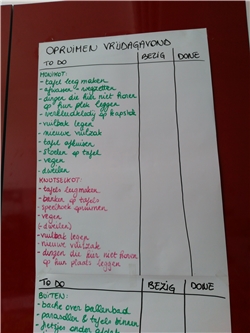 OPRUIMEN VRIJDAGAVOND
TO DO BEZIG DONE
MONIKOT:
- tafel leeg maken
- afwassen - wegzetten
- dingen die hier niet horen
op hun plek leggen
- verkleedkledij op kapstok
- vuilbak legen
- nieuwe vuilzak
- tafel afkuisen
- stoelen op tafel
- vegen
- dweilen
KNUTSELKOT:
- tafels leegmaken
- banken op tafels
- speelhoek opruimen
- vegen
- (dweilen)
- vuilbak legen
- nieuwe vuilzak
- dingen die hier niet horen
op hun plaats leggen
TO DO BEZIG DONE
BUITEN:
- bache over ballenbad
- parasollen & tafels binnen
- fietsjes onder